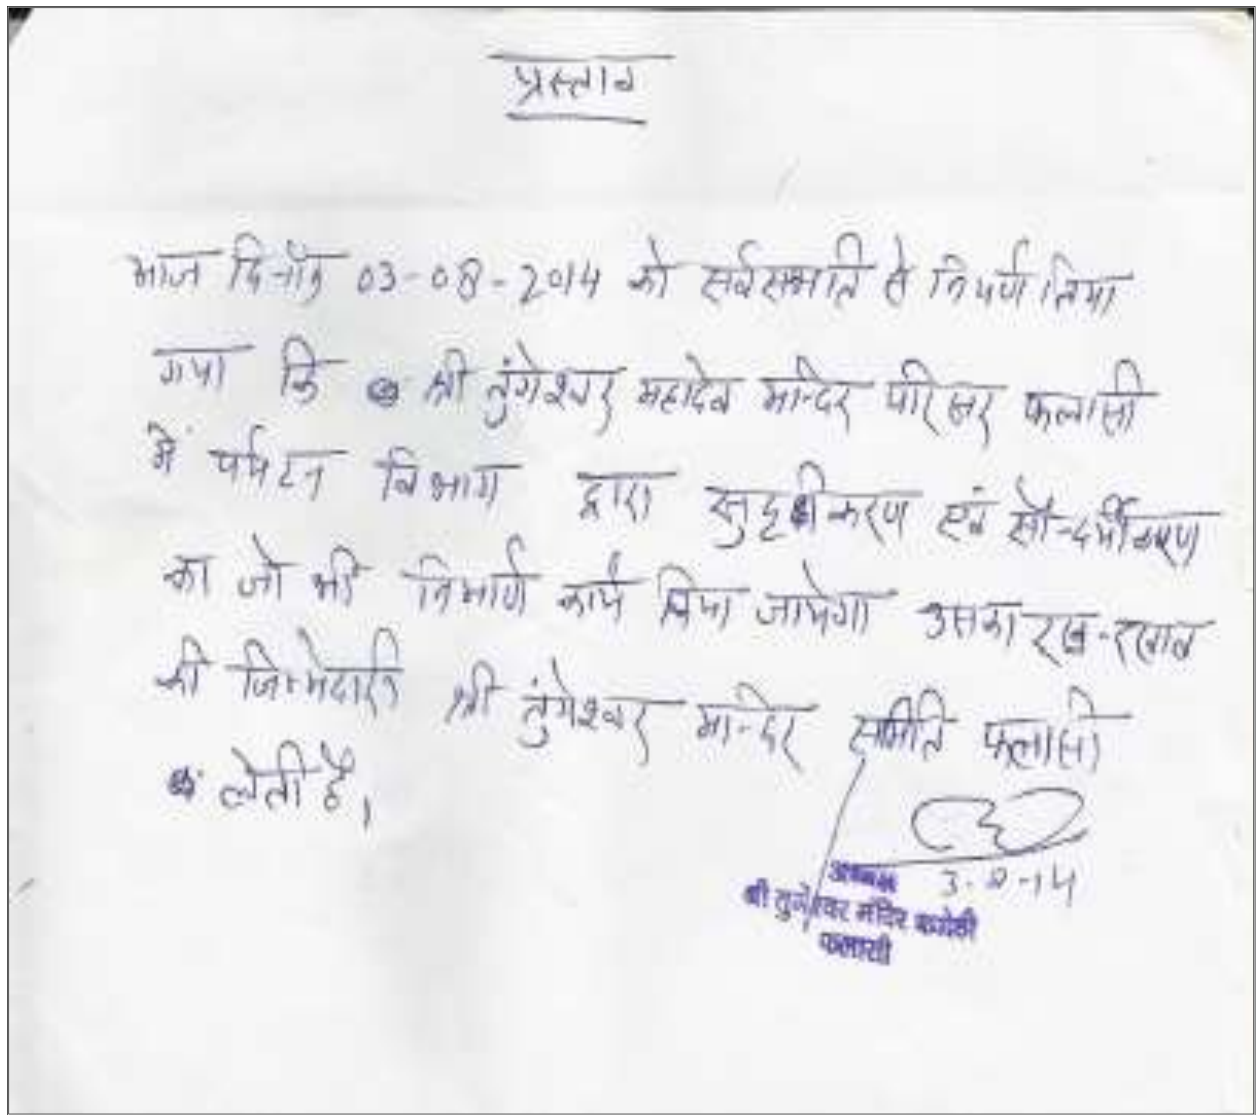 प्रस्ताव
आज दिनाँक 03-08-2014 को सर्वसम्मति से निर्णय लिया
गया कि श्री तुंगेश्वर महादेव मन्दिर परिसर फलासी
में पर्यटन विभाग द्वारा सुदृढीकरण एवं सौन्दर्यीकरण
का जो भी निर्माण कार्य किया जायेगा उसका रख-रखाव
की जिम्मेदारी श्री तुंगेश्वर मन्दिर समिति फलासी
लेती है।
3-8-14
अध्यक्ष
श्री तुंगेश्वर मंदिर कमेटी
फलासी